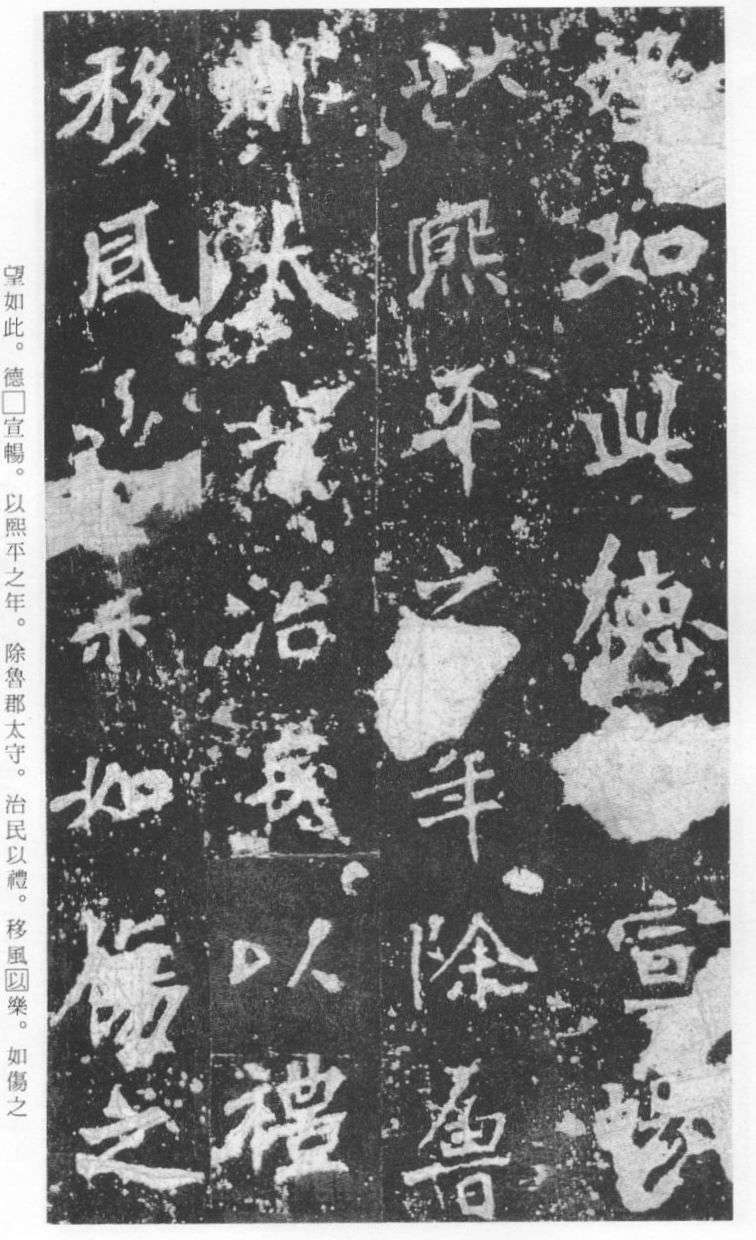 望如此德宣暢
以熙平之年除魯
郡太守治民以禮
移風以樂如傷之
望如此。德□宣暢。以熙平之年。除魯郡太守。治民以禮。移風以樂。如傷之